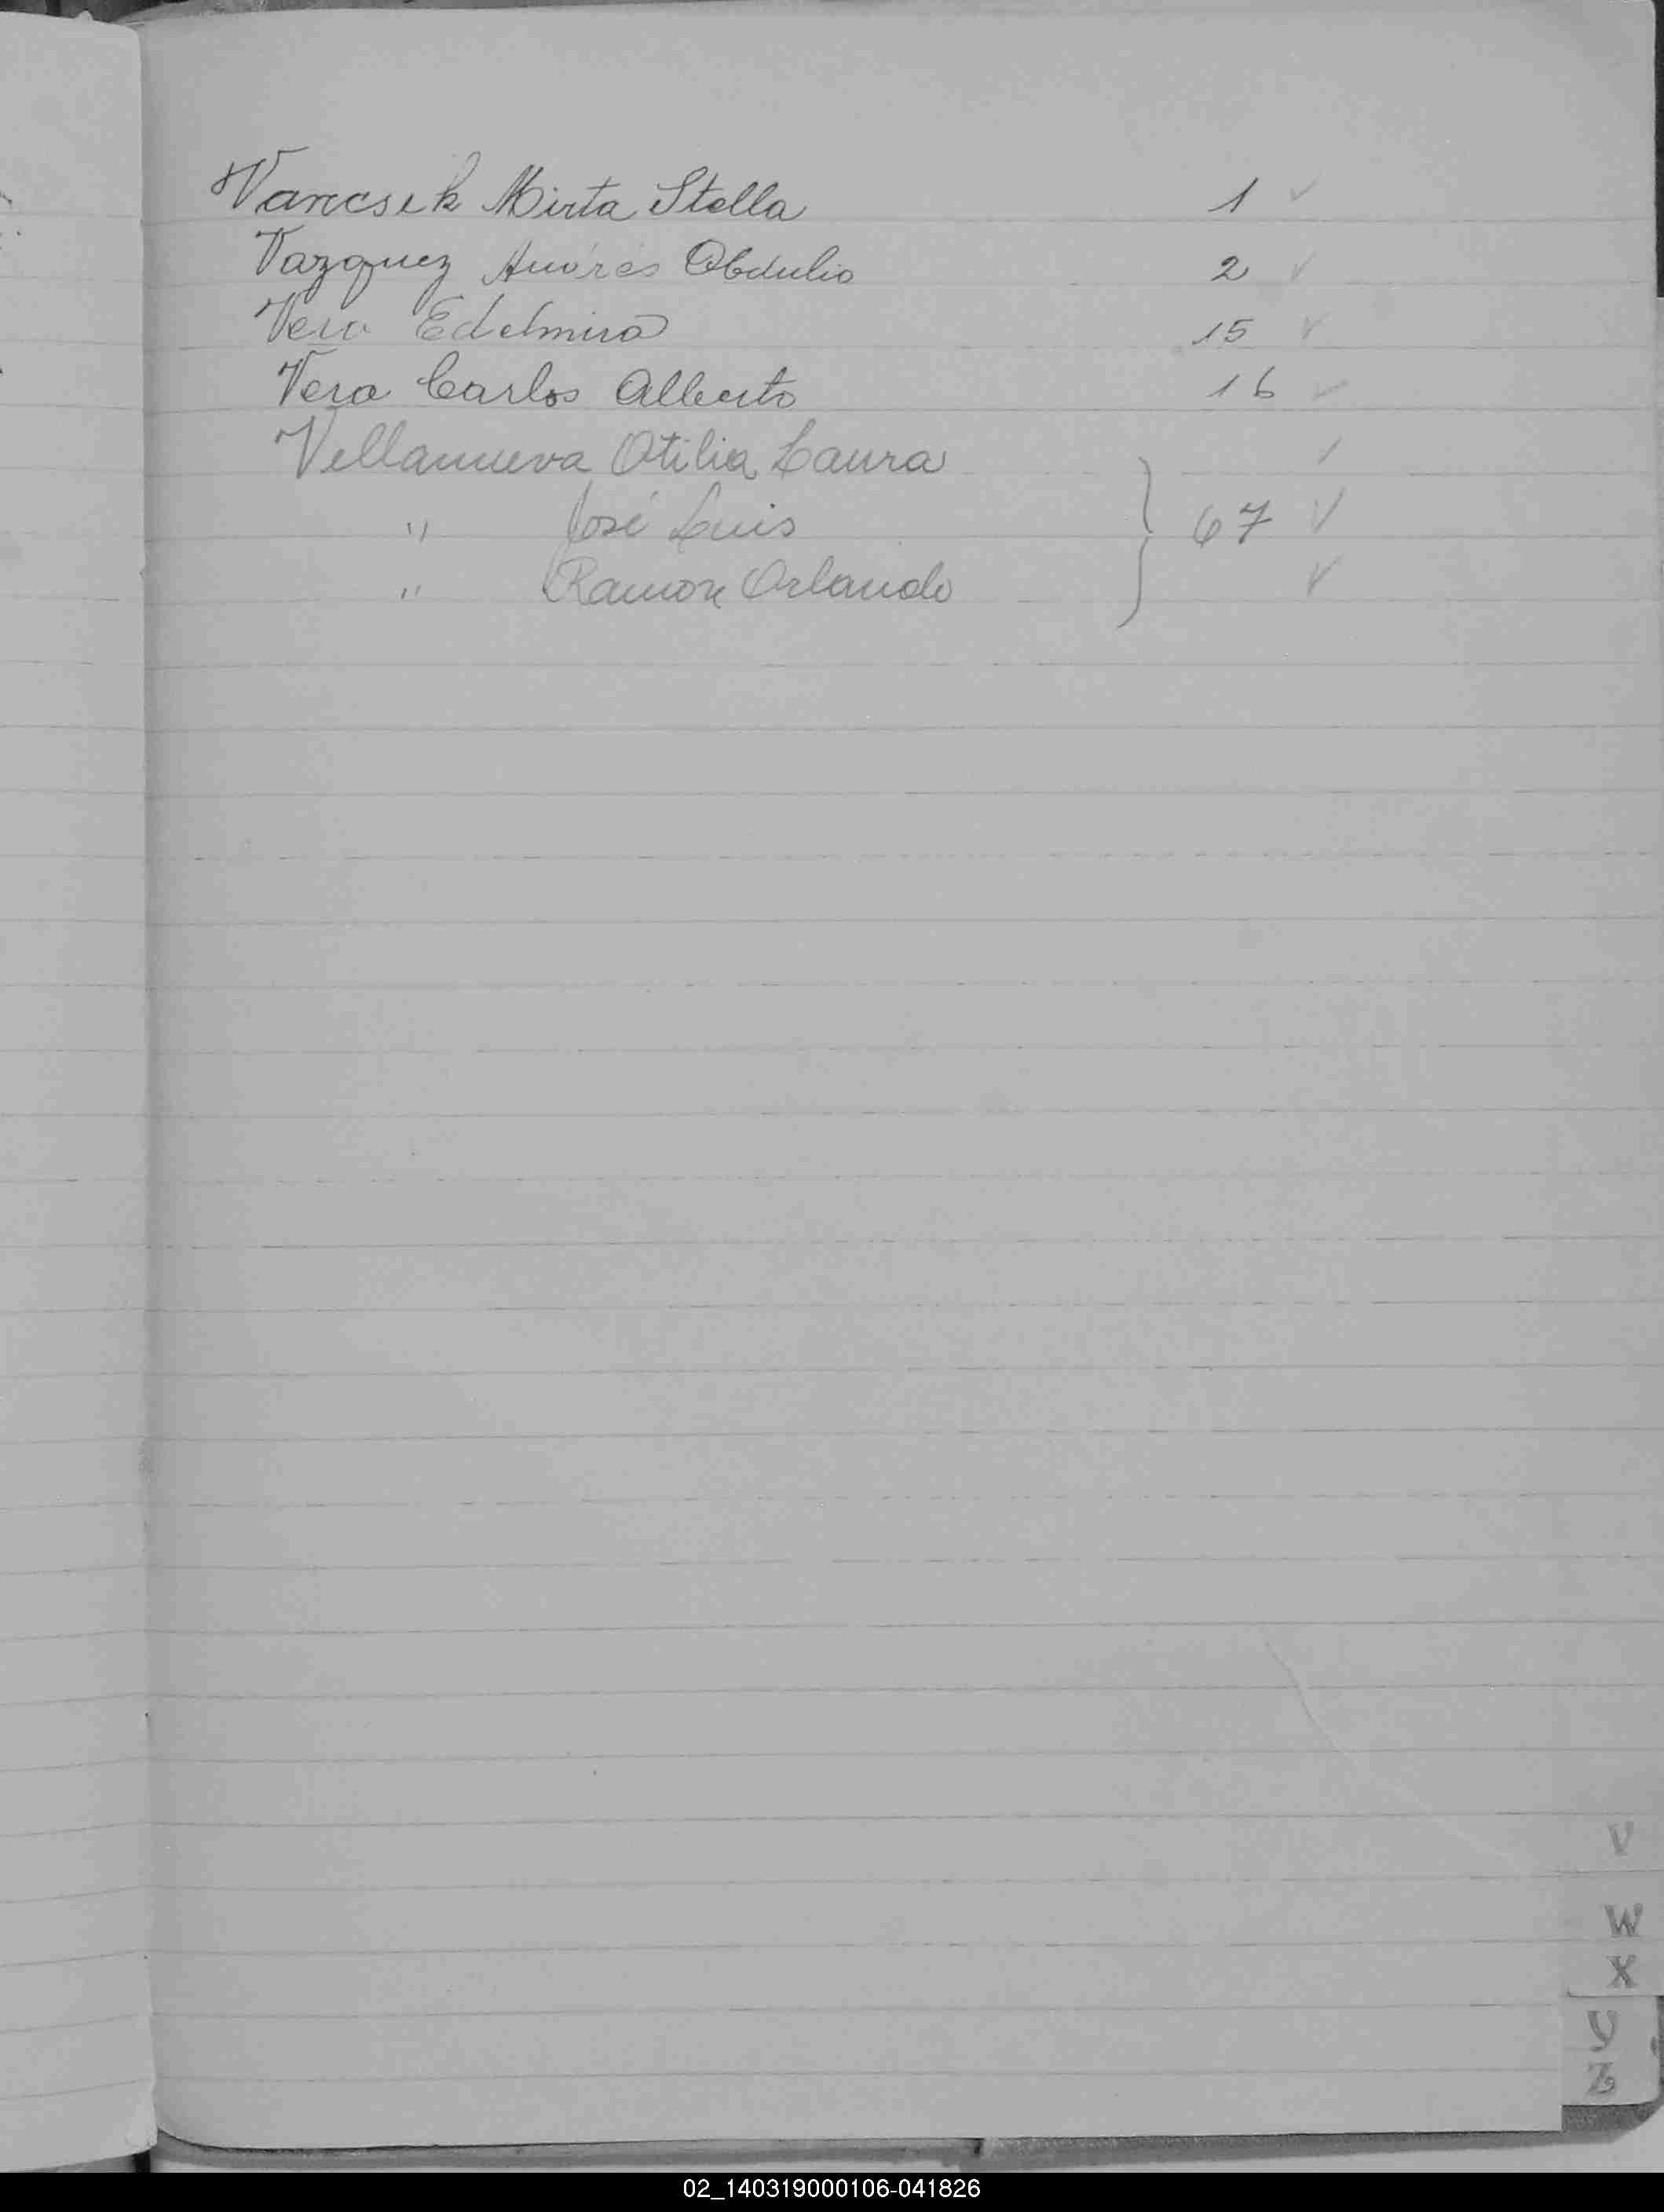 Vancsek Mirta Stella 1 ✓
Vazquez Andrés Obdulio 2 ✓
Vera Edelmira 15 ✓
Vera Carlos Alberto 16 ✓
Villanueva Otilia Laura ✓
" José Luis } 67 ✓
" Ramon Orlando ✓
V
W
X
Y
Z
02_140319000106-041826